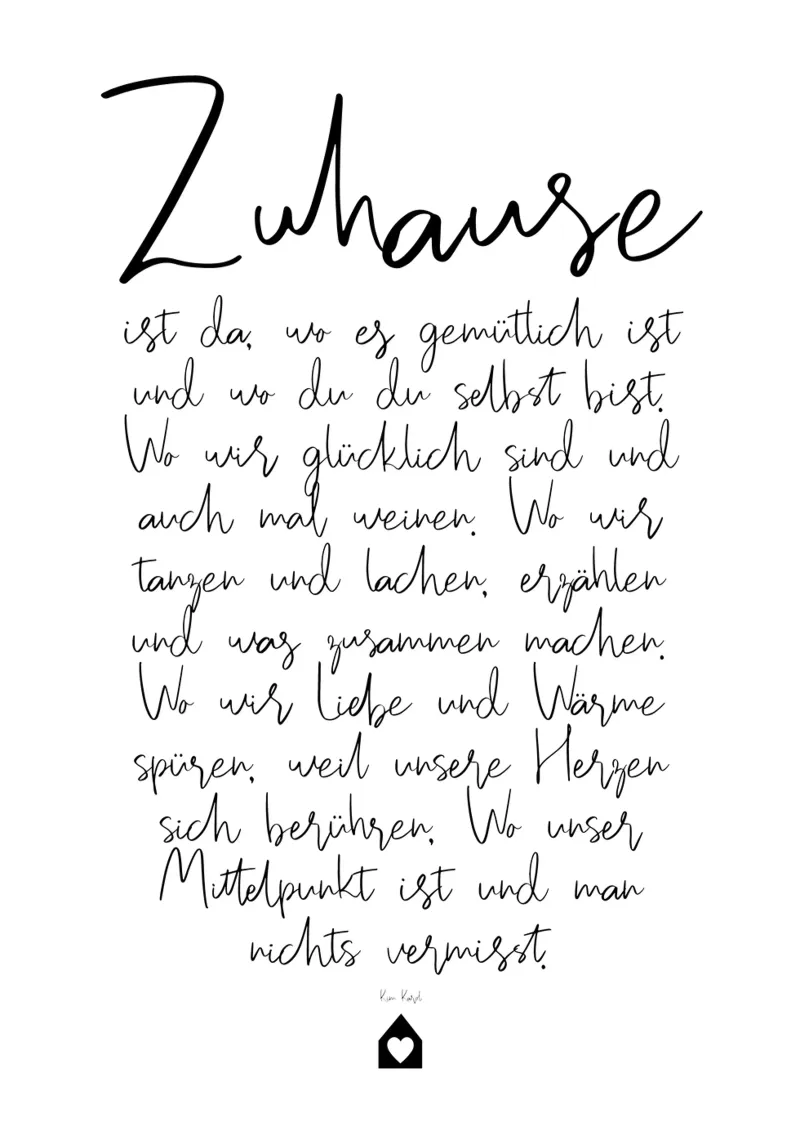 Zuhause
ist da, wo es gemütlich ist
und wo du du selbst bist.
Wo wir glücklich sind und
auch mal weinen. Wo wir
tanzen und lachen, erzählen
und was zusammen machen.
Wo wir Liebe und Wärme
spüren, weil unsere Herzen
sich berühren, Wo unser
Mittelpunkt ist und man
nichts vermisst.
Kim